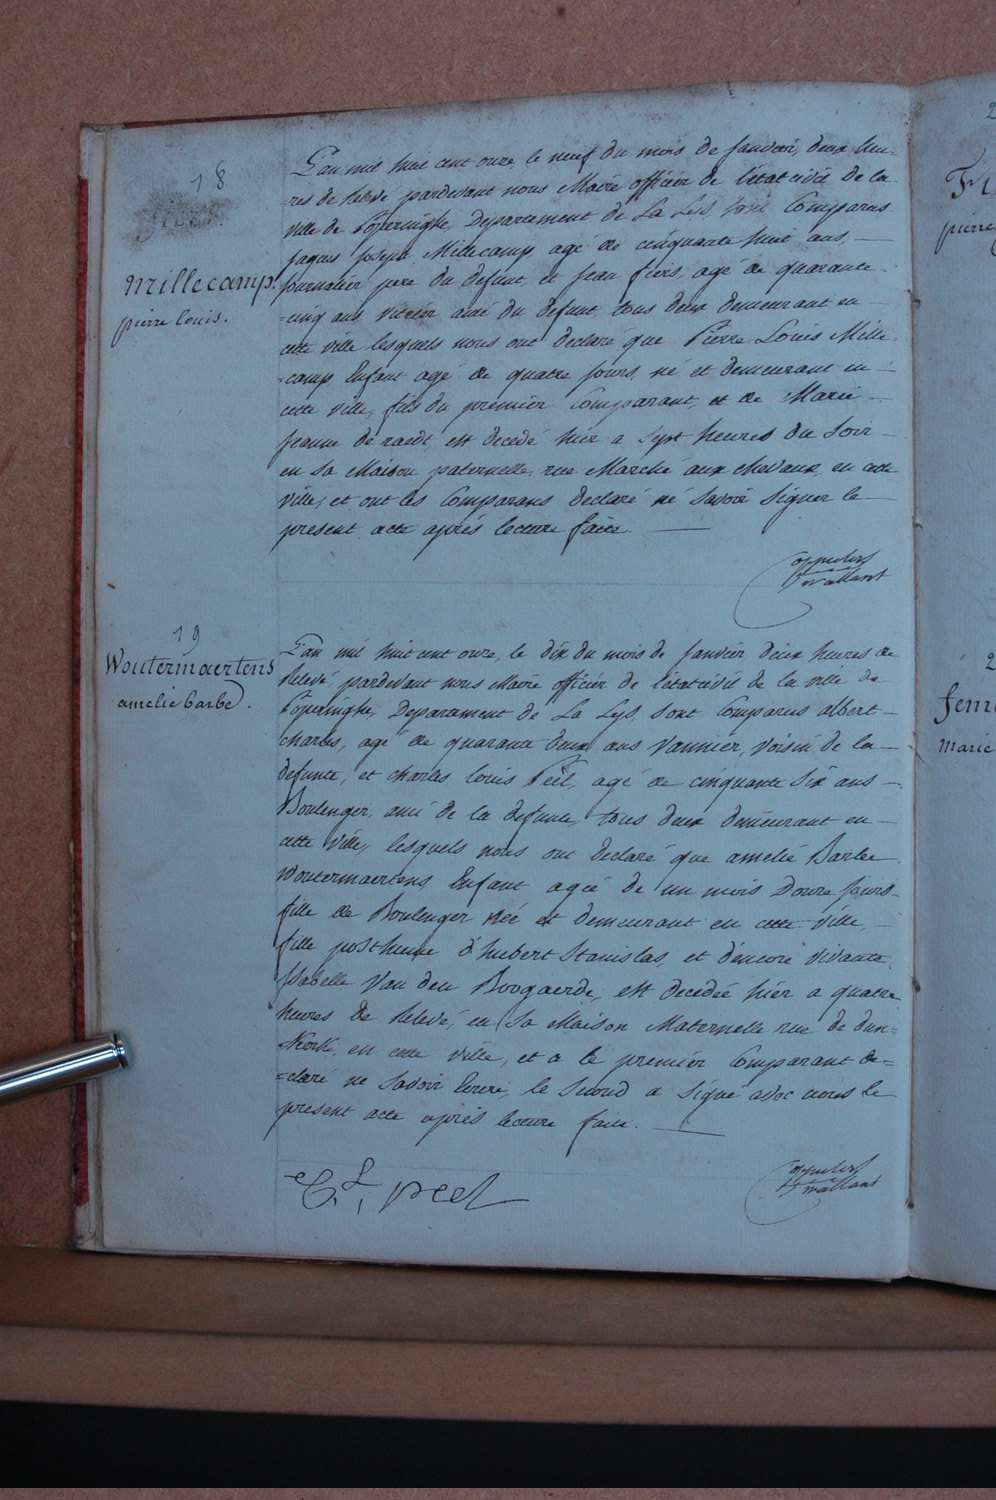 18
Millecamp
pierre louis.
L'an mil huit cent onze, le neuf du mois de Janvier, deux heu-
-res de relevé pardevant nous Maire officier de l'état civil de la
ville de Poperinghe, Departement de La Lys, sont Comparus
Jaques Joseph Millecamp, agé de cinquante huit ans, —
Journalier, pere du defunt, et Jean fiers, agé de quarante
-cinq ans, vitrier, ami du defunt, tous deux demeurant en —
cette ville lesquels nous ont declaré que Pierre Louis Mille-
-camp Enfant agé de quatre Jours, né et demeurant en —
cette ville, fils du premier Comparant, et de Marie —
Jeanne de raedt, est decedé hier a sept heures du Soir —
en sa Maison paternelle, rue Marché aux chevaux en cette
ville, et ont les Comparans declaré né Savoir Signer le —
present acte après lecture faite. —
19
Woutermaertens
amelie barbe.
L'an mil huit cent onze, le dix du mois de Janvier deux heures de
relevé, pardevant nous Maire officier de l'état civil de la ville de
Poperinghe, Departement de La Lys, sont Comparus albert —
charles, agé de quarante deux ans Vannier, Voisin de la —
defunte, et charles louis Peel, agé de cinquante Six ans —
Boulenger, ami de la defunte, tous deux demeurant en —
cette ville, lesquels nous ont declaré que amelie Barbe
Woutermaertens Enfant agée de un mois Douze Jours —
fille de Boulenger née et demeurant en cette ville, —
fille posthume d'hubert Stanislas, et d'encore vivante,
Isabelle Van den Boogaerde, est decedée hier a quatre
heures de relevé, en Sa Maison Maternelle rue de dun-
-kerke, en cette ville, et a le premier Comparant de-
-claré ne Savoir Ecrire, le Second a Signé avec nous le
present acte après lecture faite. —
C L, peel
2
pierre
2
Marie